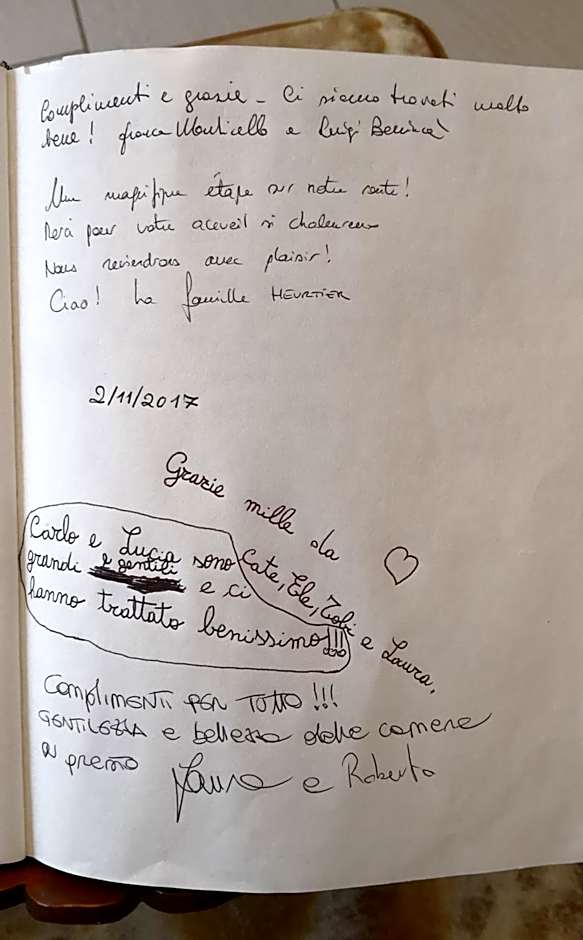 Complimenti e grazie - Ci siamo trovati molto
bene! Franca Monticello e Luigi Bevilacqua
Une magnifique étape sur notre route!
Merci pour votre accueil si chaleureux
Nous reviendrons avec plaisir!
Ciao! La famille HEURTIER
2/11/2017
Grazie mille da
Cate, Ele, Tobi e Laura.
Carlo e Lucia sono
grandi e gentili e ci
hanno trattato benissimo!!!
COMPLIMENTI PER TUTTO!!!
GENTILEZZA e bellezza delle camere
Laura e Roberto